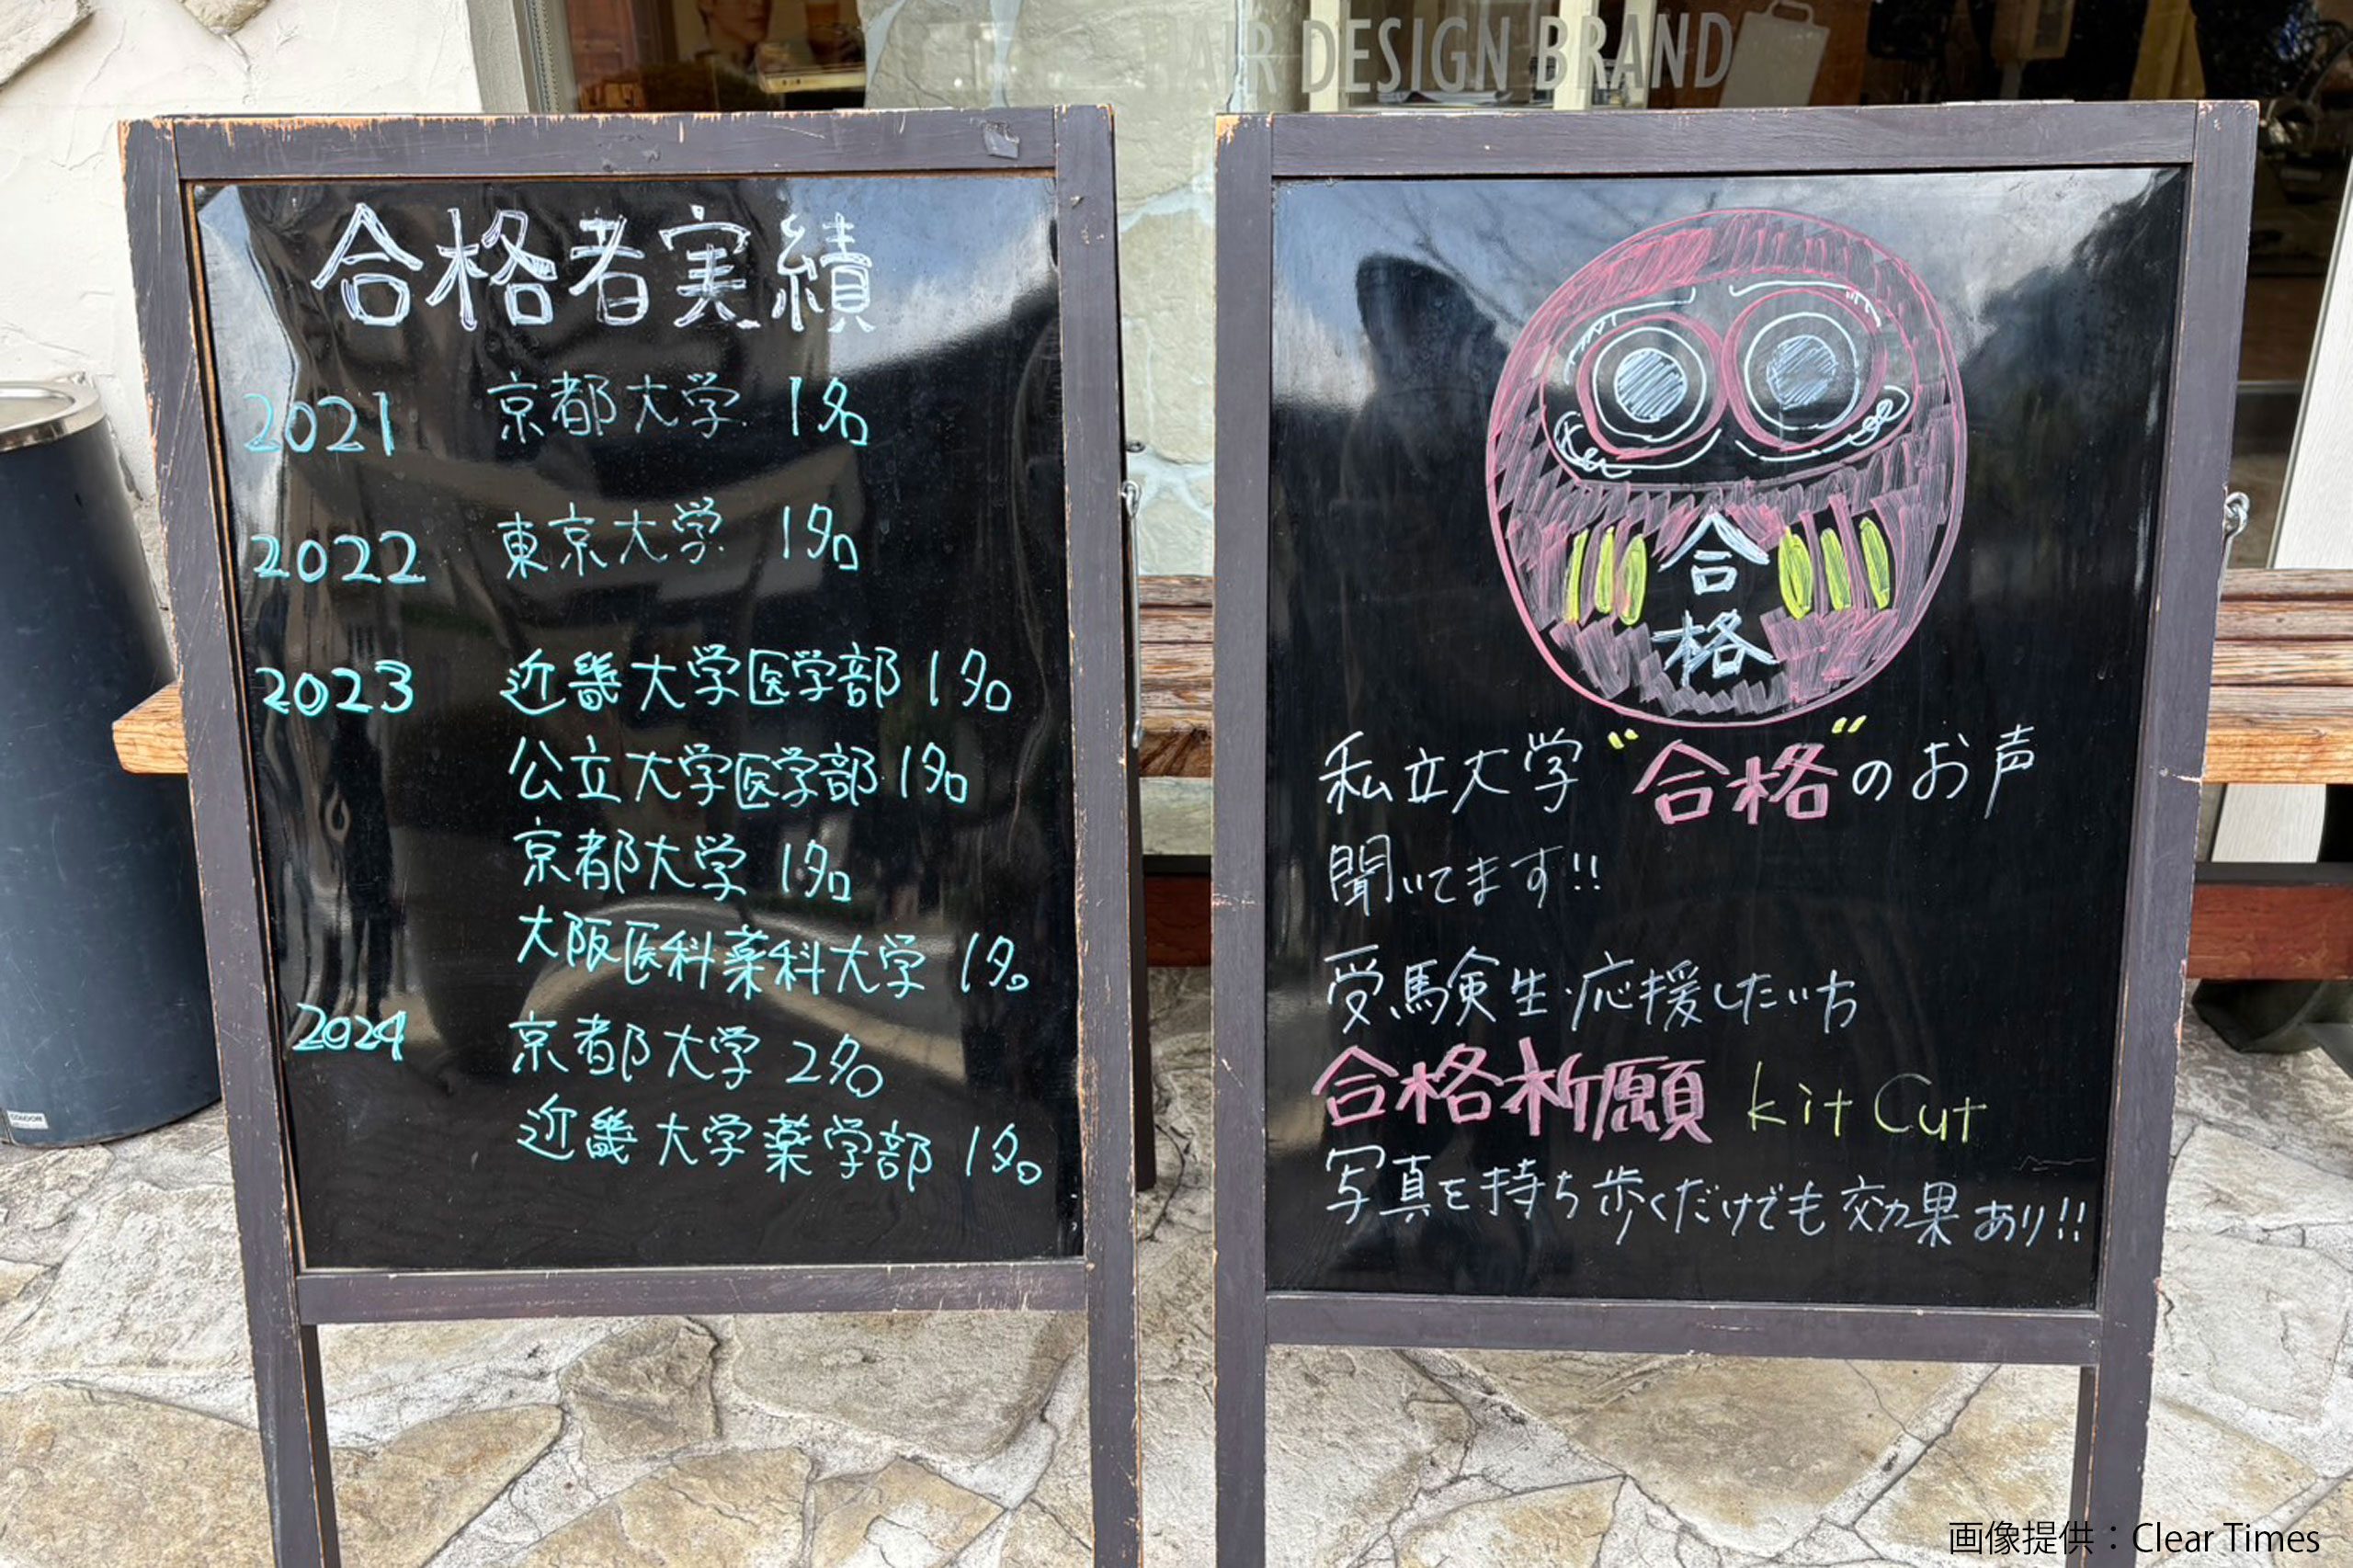 HAIR DESIGN BRAND
合格者実績
2021 京都大学 1名
2022 東京大学 1名
2023 近畿大学医学部 1名
公立大学医学部 1名
京都大学 1名
大阪医科薬科大学 1名
2024 京都大学 2名
近畿大学薬学部 1名
合
格
私立大学"合格"のお声
聞いてます!!
受験生応援したいち
合格祈願 kit Cut
写真を持ち歩くだけでも効果あり!!
画像提供：Clear Times